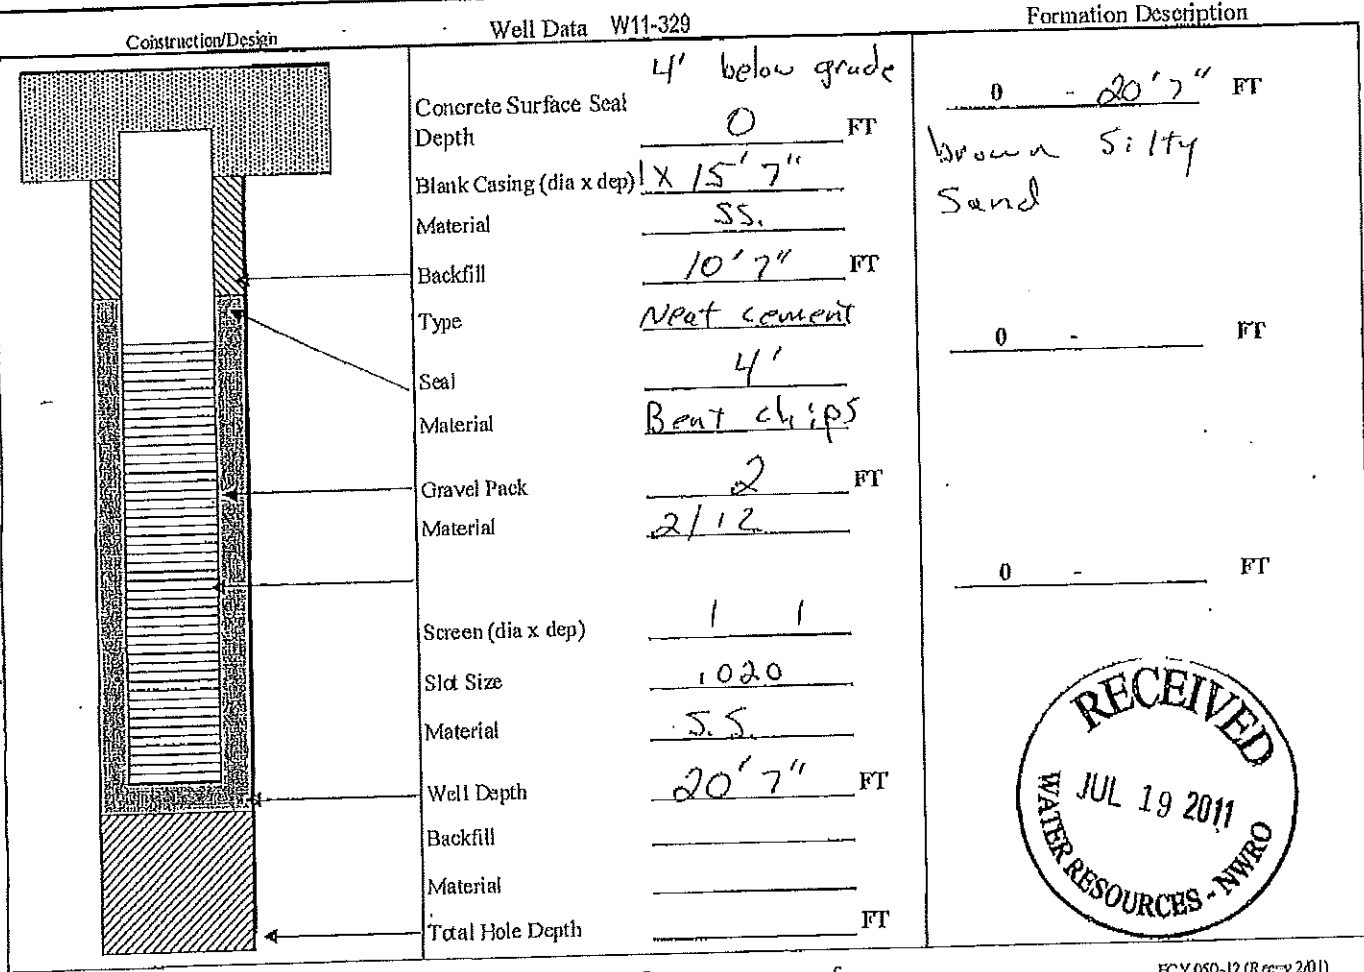 Construction/Design
Well Data W11-329
Formation Description
4' below grade
Concrete Surface Seal
Depth 0 FT
Blank Casing (dia x dep) 1 X 15' 7"
Material SS.
Backfill 10' 7" FT
Type Neat cement
Seal 4'
Material Bent chips
Gravel Pack 2 FT
Material 2/12
Screen (dia x dep) 1 1
Slot Size .020
Material S.S.
Well Depth 20' 7" FT
Backfill
Material
Total Hole Depth FT
0 - 20' 7" FT
brown Silty
Sand
0 - FT
0 - FT
RECEIVED
JUL 19 2011
WATER RESOURCES - NWRO